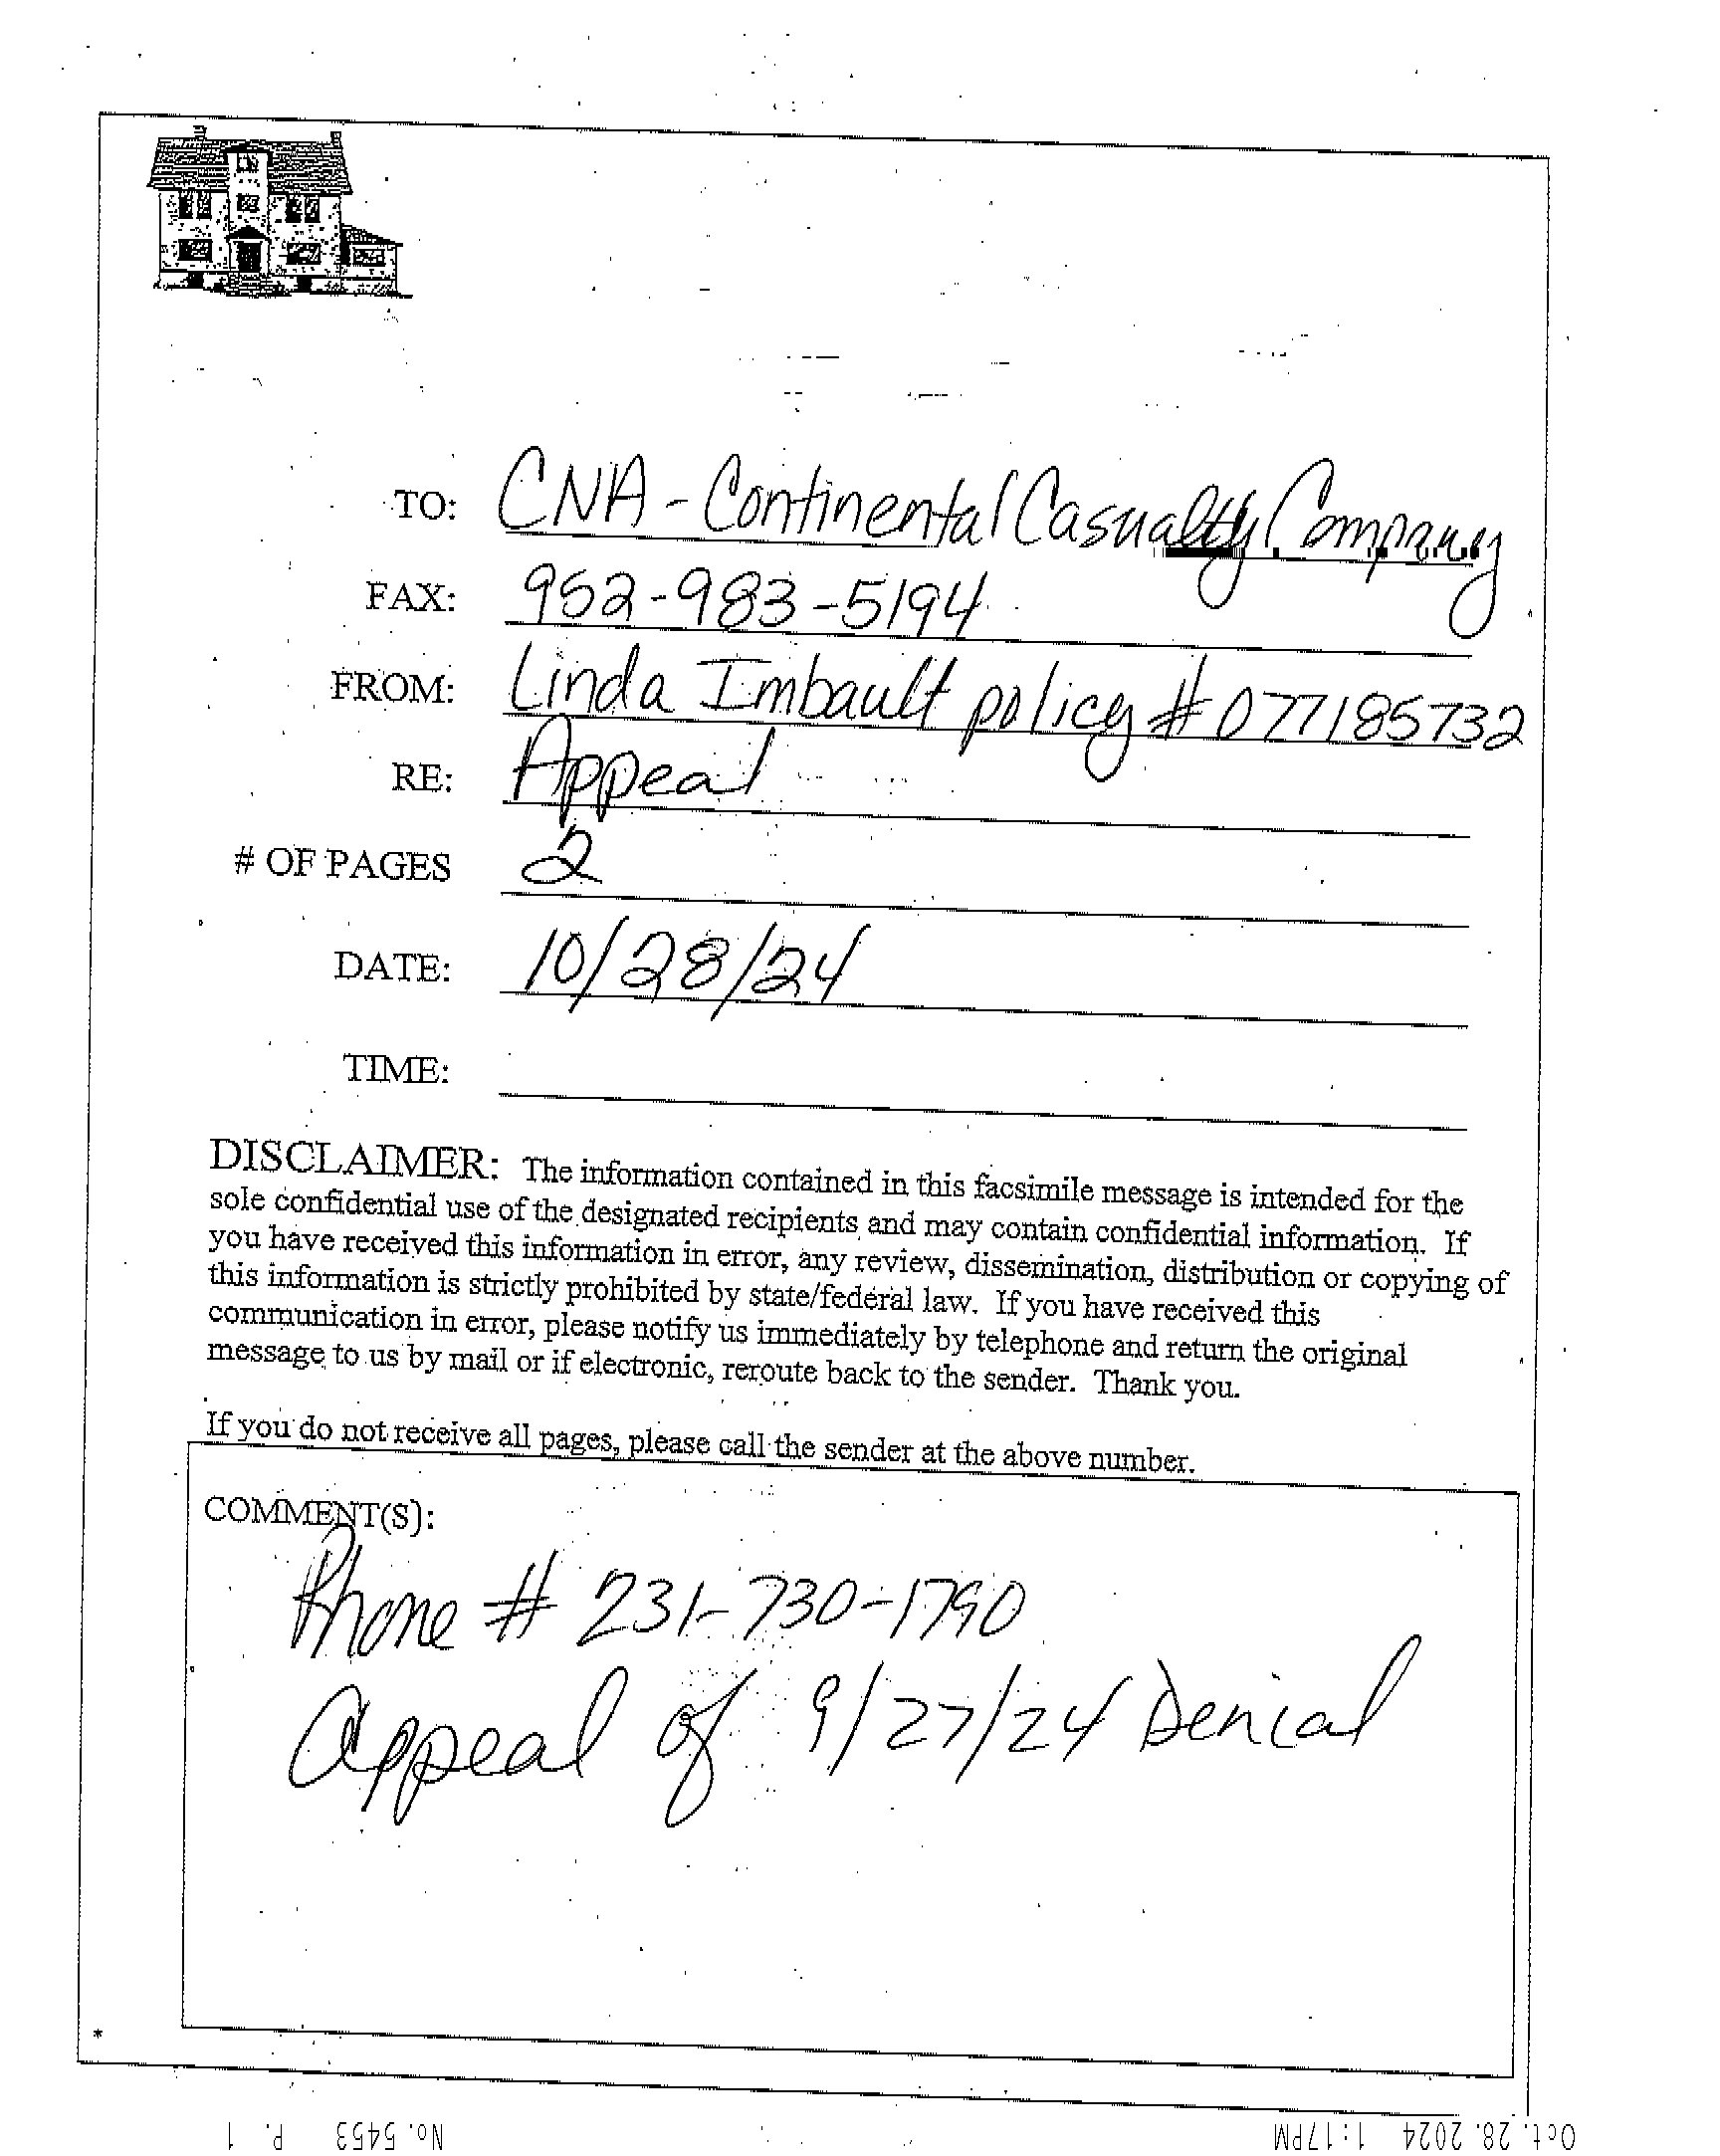 TO: CNA - Continental Casualty Company
FAX: 952-983-5194
FROM: Linda Imbault policy # 077185732
RE: Appeal
# OF PAGES 2
DATE: 10/28/24
TIME:
DISCLAIMER: The information contained in this facsimile message is intended for the
sole confidential use of the designated recipients and may contain confidential information. If
you have received this information in error, any review, dissemination, distribution or copying of
this information is strictly prohibited by state/federal law. If you have received this
communication in error, please notify us immediately by telephone and return the original
message to us by mail or if electronic, reroute back to the sender. Thank you.
If you do not receive all pages, please call the sender at the above number.
COMMENT(S):
Phone # 231-730-1790
Appeal of 9/27/24 Denial
*
Oct. 28. 2024 1:17PM No. 5453 P. 1